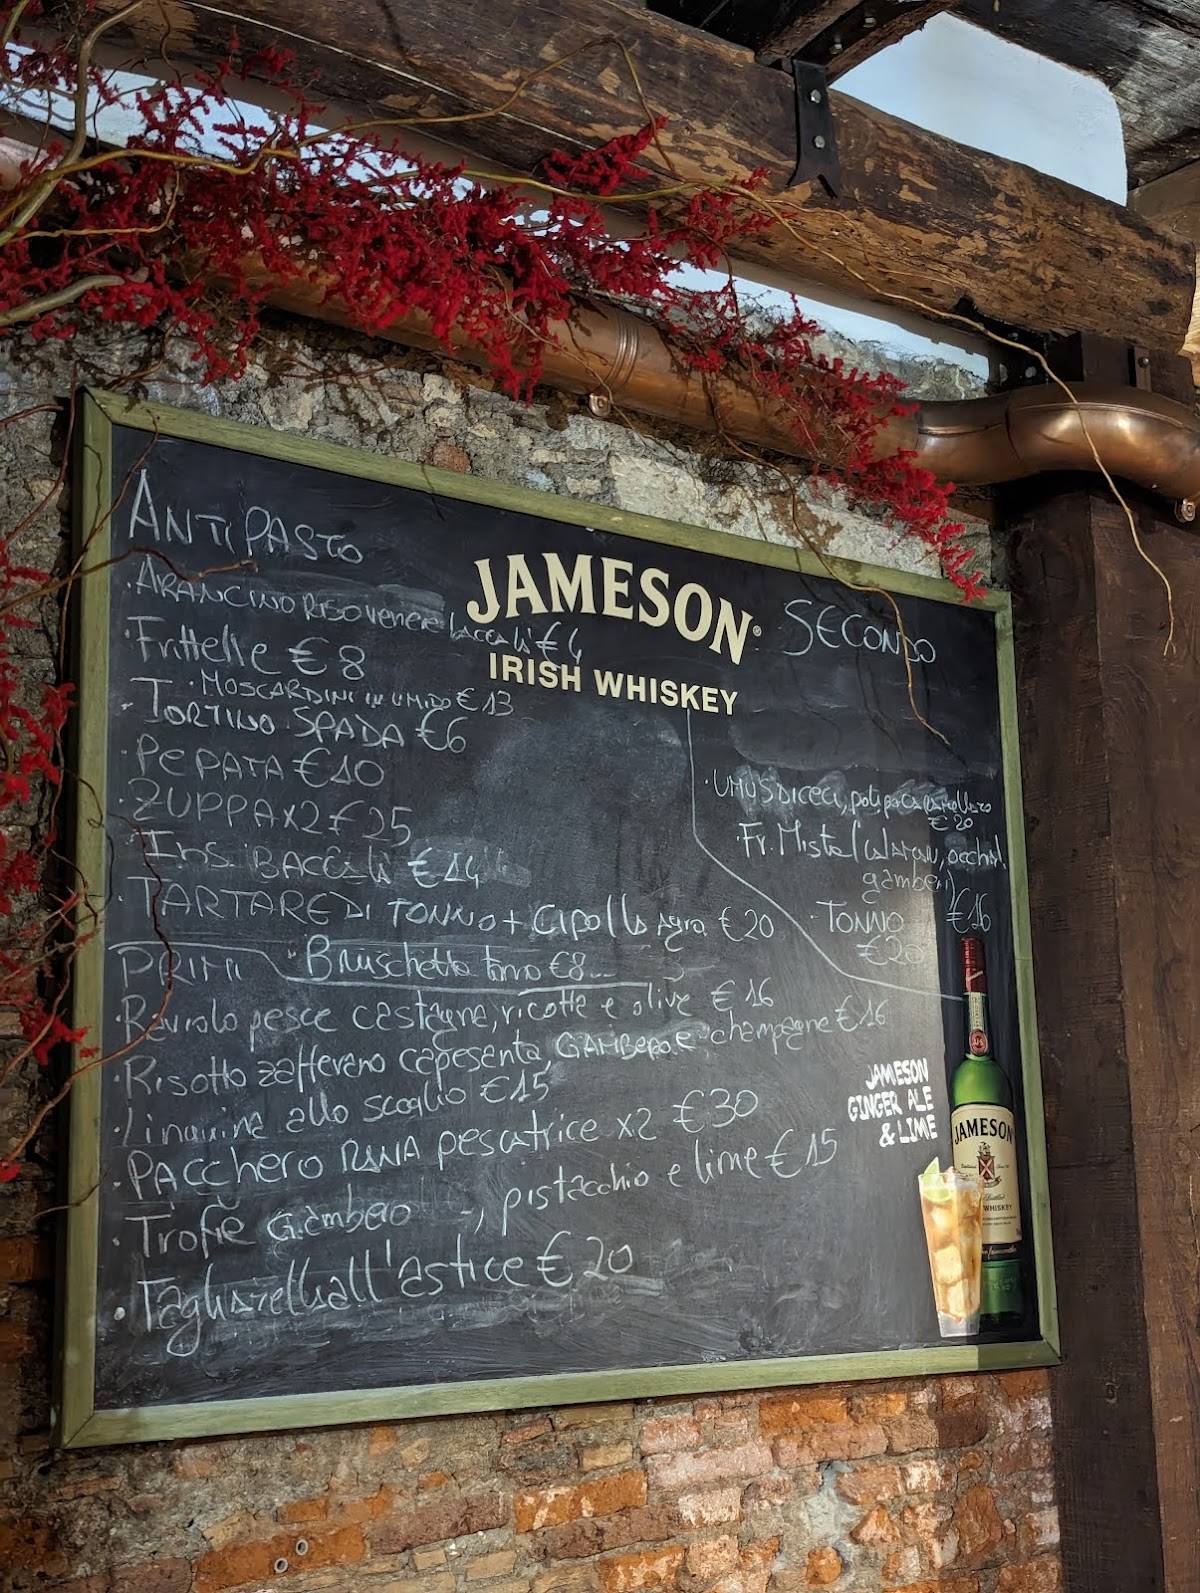 ANTIPASTO
JAMESON®
IRISH WHISKEY
·ARANCINO RISO VENERE baccalì € 4
·Frittelle € 8
·MOSCARDINI IN UMIDO € 13
·TORTINO SPADA €6
·PEPATA €10
·ZUPPA x2 € 25
·INS. BACCALÀ €14
·TARTARE DI TONNO + CIPOLLA Agra €20
·Bruschetta tonno €8
SECONDO
·UMUS DI CECI, polipo CARAMELLATO
€ 20
·Fr. Mista (
gamberi) €16
·TONNO
€20
PRIMI
·Raviolo pesce castagne, ricotta e olive € 16
·Risotto zafferano capesanta, GAMBERO e champagne €16
·Linguine allo scoglio €15
·PACCHERO RANA pescatrice x2 €30
·Trofie Gambero , pistacchio e lime € 15
·Tagliatella all'astice € 20
JAMESON
GINGER ALE
& LIME
JAMESON
WHISKEY